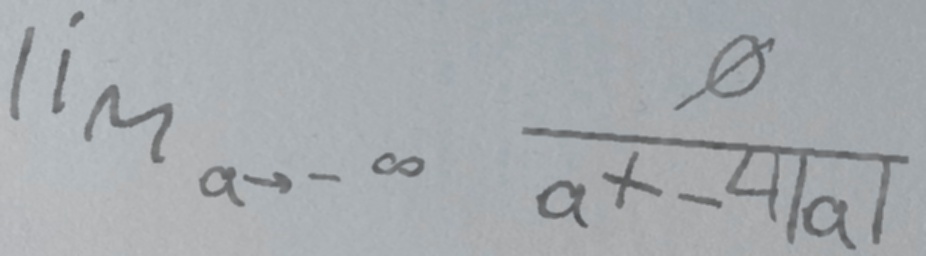 \lim_{a \to -\infty} \frac{\emptyset}{a + -4|a|}